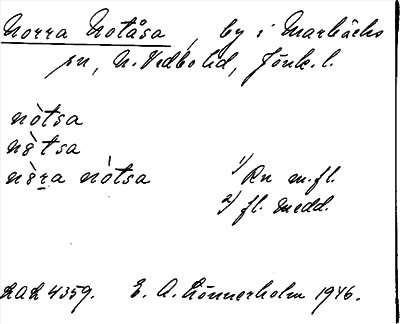 Norra Notåsa, by i Marbäcks
sn, N. Vedbo hd, Jönk. l.
nòtsa
nètsa
nèra nòtsa 1) Rn m.fl.
2) fl. medd.
LAL 4359. E. A. Lönnerholm 1946.